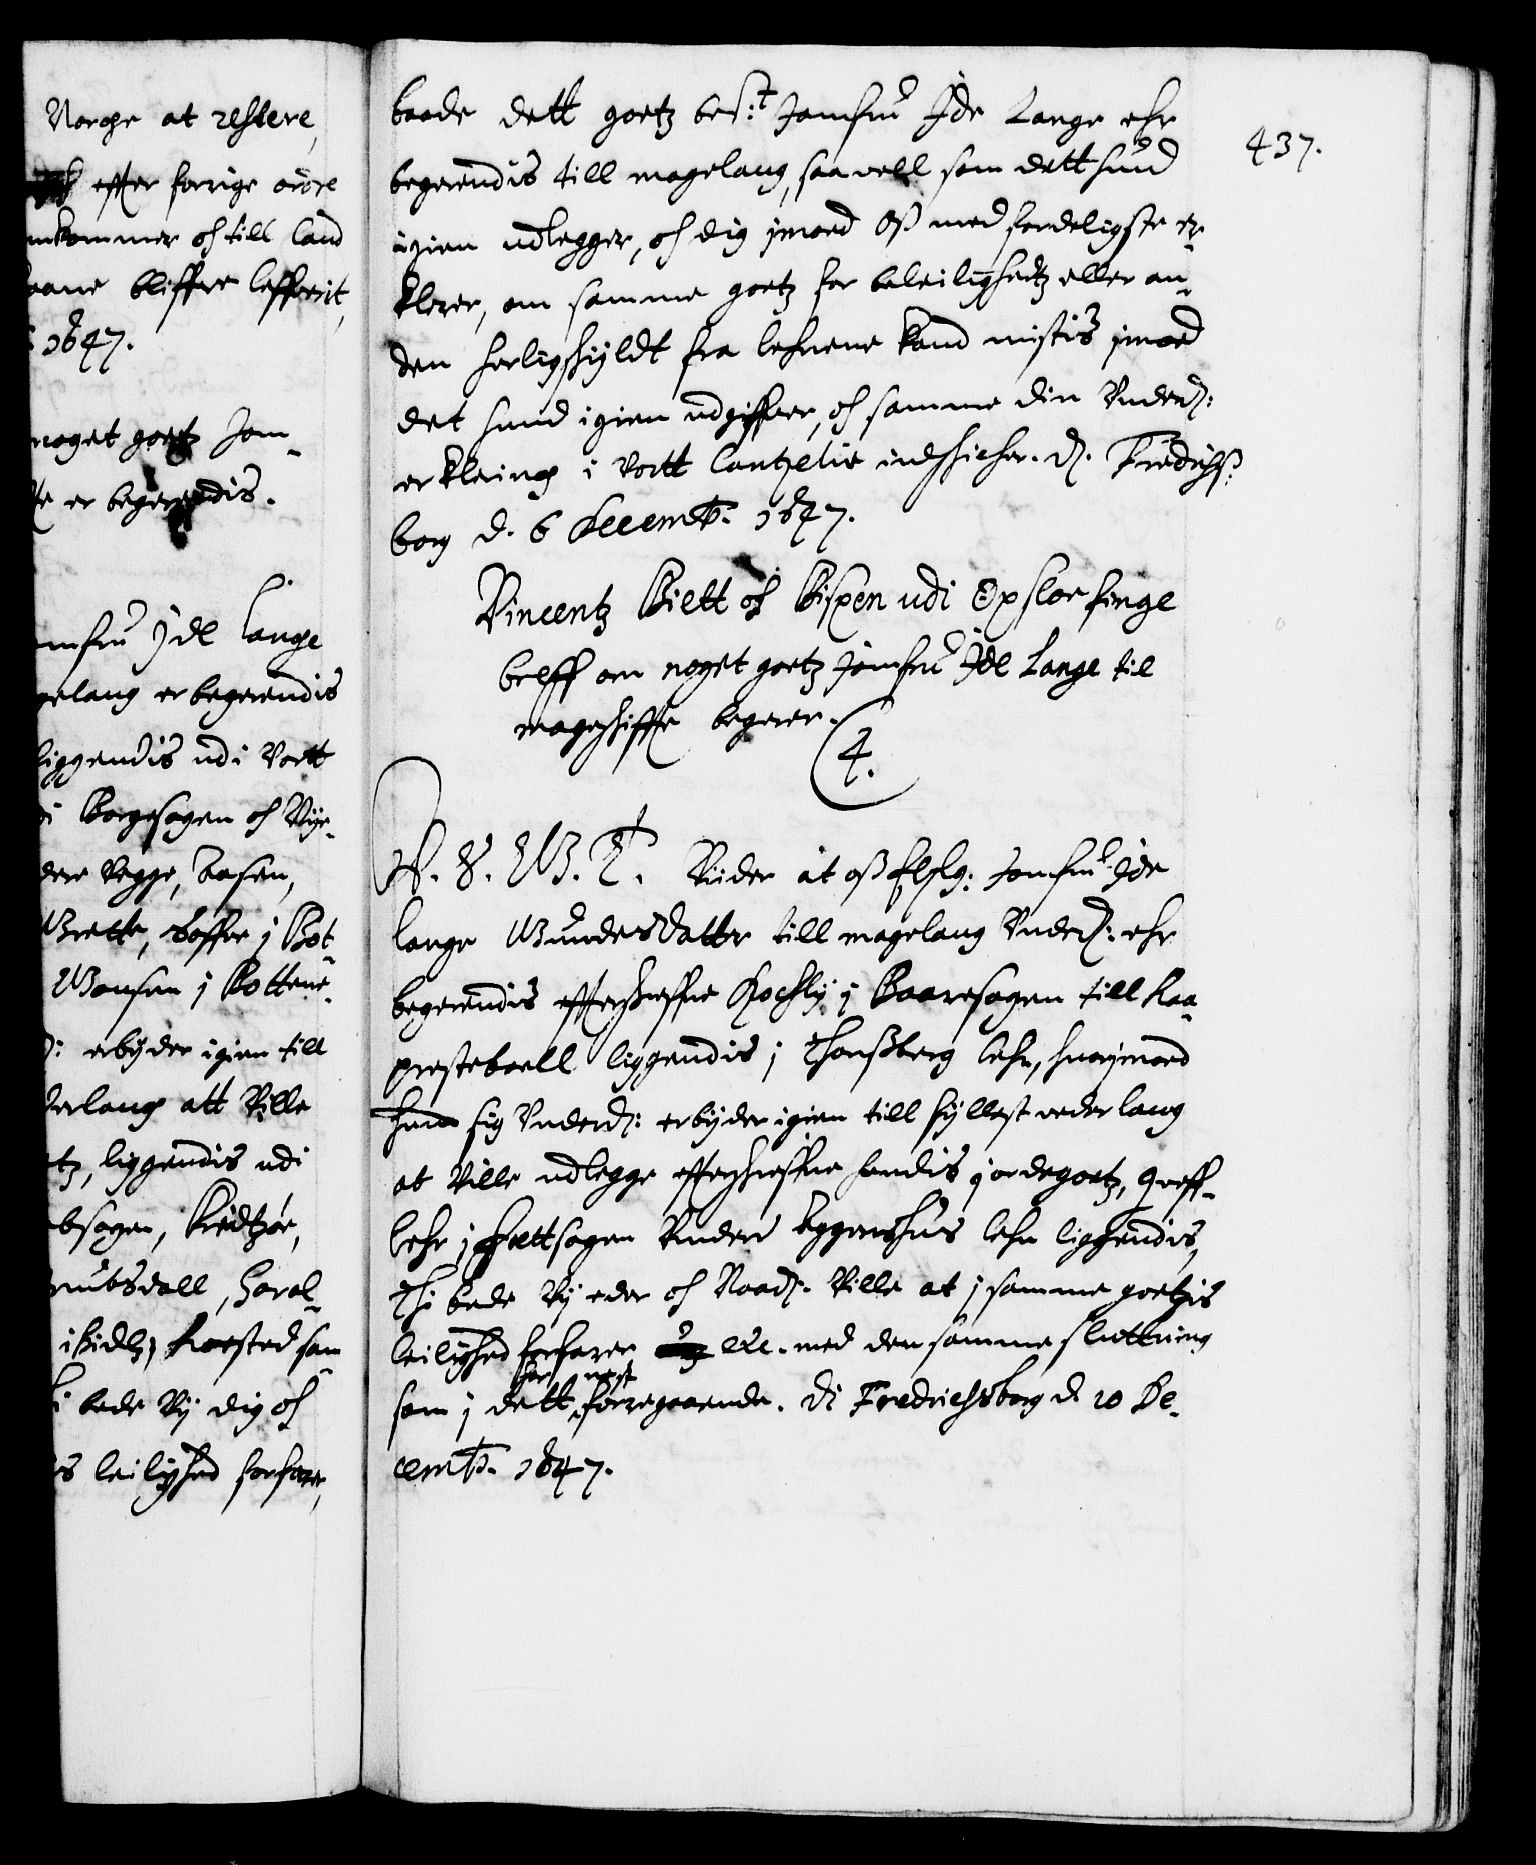 Norge at restere,
effter forrige ordre
mkommer oc till land
aane bliffver leffverit,
1647.
noget goetz Jom-
er begerendis.
mfru Ide Lange
gelaug er begerendis
liggendis udi Vortt
i Borgesogen oc Rye-
dere Vegge, Aasen,
Grette, Toffve j Bot-
Monsen j Bottene-
d: erbyder igien till
derlaug att Ville
tz, liggendis udi
bsogen, Kiedtzøe,
rubsdall, Haral-
Horsted som
i bede Vij dig oc
s leilighed forfarer,
437.
baade dett goetz bes:t Jomfru Ide Lange ehr
begerendis till magelaug, saavell som dett hund
igien udlegger, oc dig imod Oß med forderligste er-
klerer, om samme goetz for beleilighedtz eller an-
den herligskyldt fra lehnene kand mistis imod
det hund igien udgiffver, oc samme din Underd:
erklering i Vortt Cantzelie indskicher. D. Fredrichß-
borg d. 6 Decemb. 1647.
Vincentz Bielt oc Bispen udi Opsloe finge
breff om noget goetz Jomfru Ide Lange til
mageskiffte begerer.
4.
C. 4. W. T. Vider at oß Elsk: Jomfru Ide
Lange Gundesdatter till magelaug Underd: ehr
begerendis effterskreffne Rochly j Baaresogen till Raa-
prestebaell liggendis j Thonßberg lehn, huorimod
hun sig Underd: erbyder igien till fyllest vederlaug
at Ville udlegge effterskreffne hendis jordegoetz, Greff-
lehr j Fettsogen Under Aggershus lehn liggendis,
Thi bede Vij eder oc Naad: Ville at j samme goetzis
leilighed forfarer etc. med den samme sluttning
som j dett her nest forregaaende. Di Fredrichsborg d 20 De-
cemb. 1647.